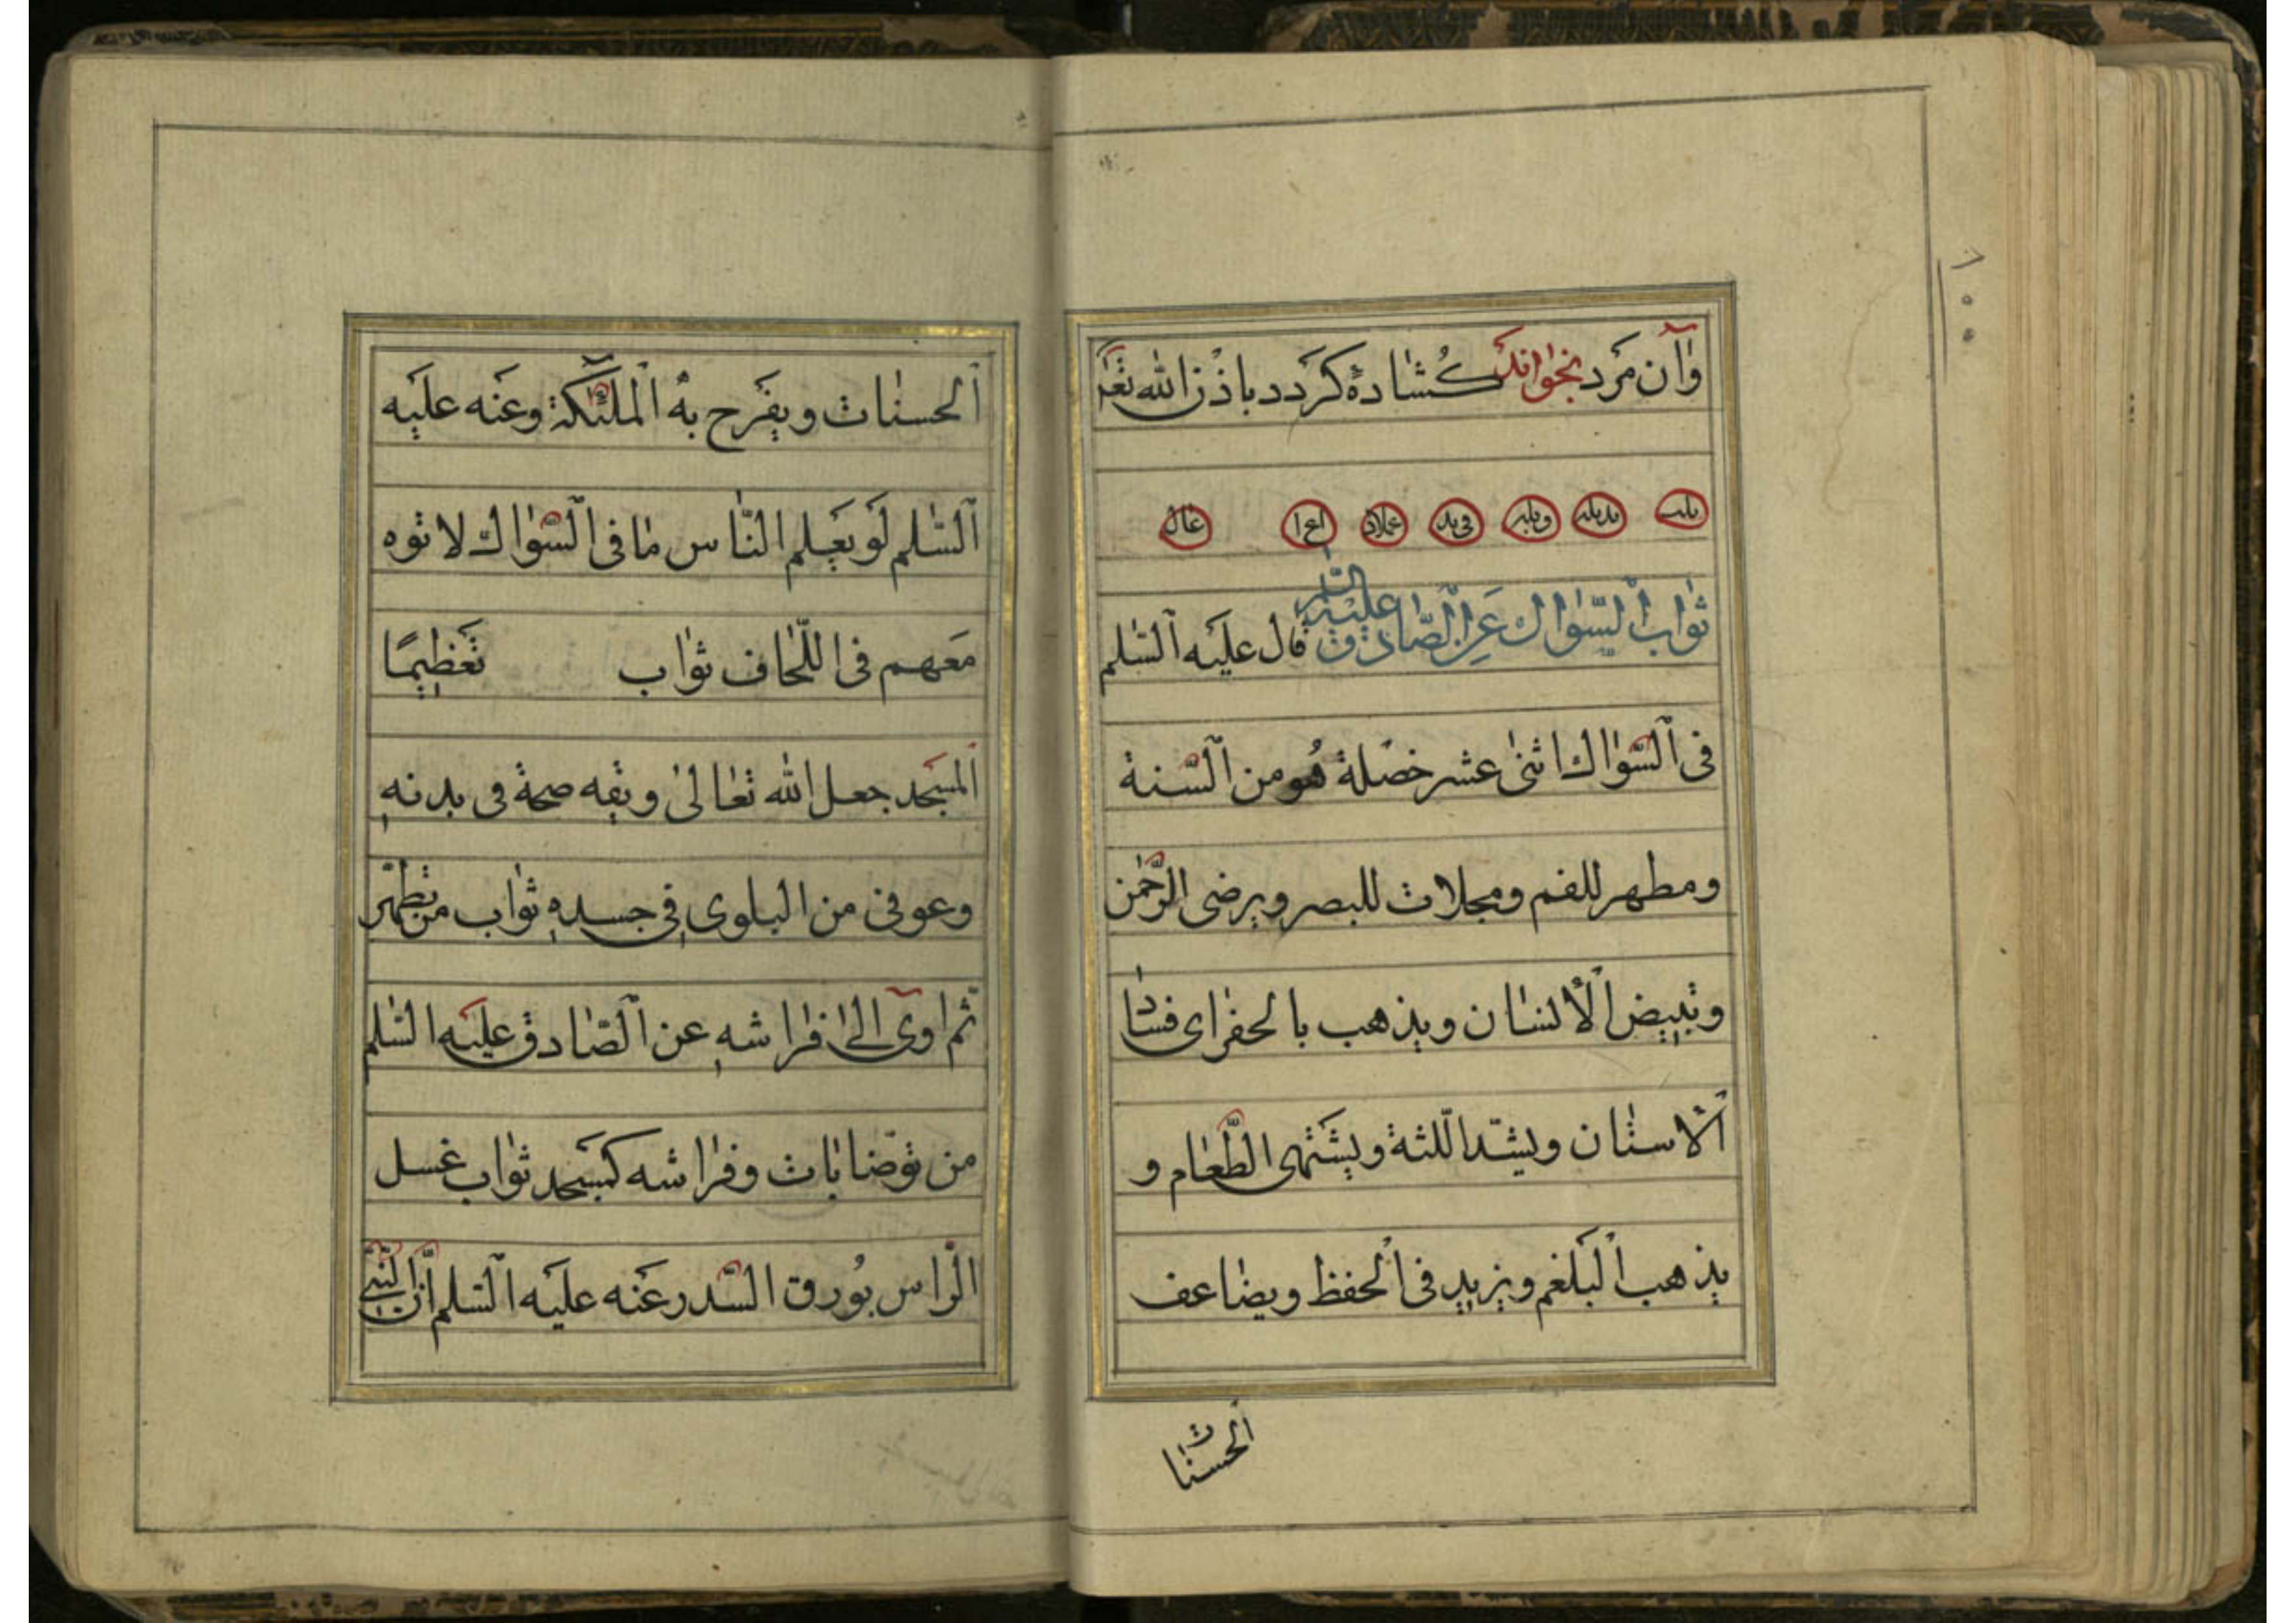 وآن مرد بخواند کشاده کردد باذن الله تعا
ثواب السواك عن الصادق عليه السلم قال عليه السلم
فى السواك اثنى عشر خصلة هو من السنة
ومطهر للفم ومجلات للبصر ويرضى الرحمن
وتبيض الانسان ويذهب بالحفر اى فساد
الاسنان ويشد اللثة ويشتهى الطعام و
يذهب البلغم ويزيد فى الحفظ ويضاعف
الحسنات
الحسنات ويفرح به الملئكة وعنه عليه
السلم لو يعلم الناس ما فى السواك لا توه
معهم فى اللحاف ثواب تعظيما
المسجد جعل الله تعالى ويقه صحة فى بدنه
وعوفى من البلوى فى جسده ثواب من تطهر
ثم اوى الى فراشه عن الصادق عليه السلم
من توضا بات وفراشه كمسجد ثواب غسل
الراس بورق السدر عنه عليه السلم ان النبى